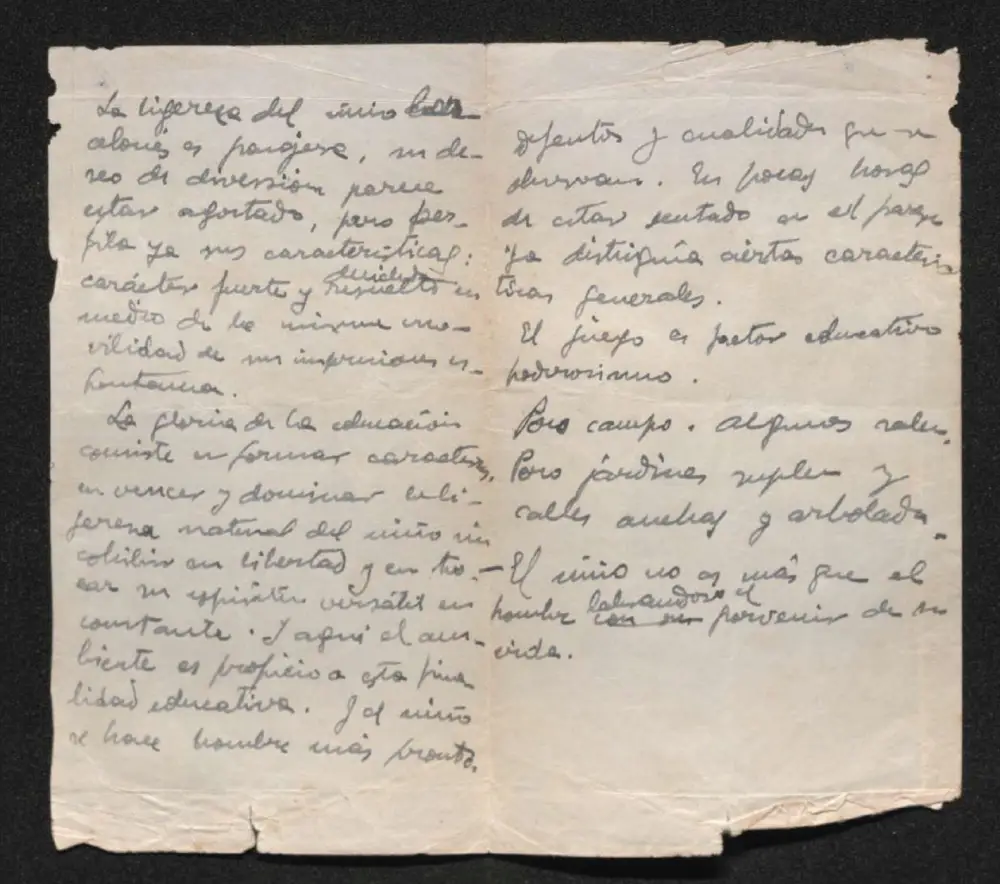 La ligereza del niño bar-
celonés es pasajera, su de-
seo de diversión parece
estar agostado, pero per-
fila ya sus características:
carácter fuerte y resuelto decidido en
medio de la misma mo-
vilidad de sus impresiones es-
pontanea.
La gloria de la educación
consiste en formar caracteres,
en vencer y dominar la li-
gereza natural del niño sin
cohibir su libertad y en tro-
car su espíritu versátil en
constante. Y aquí el am-
biente es propicio a esta fina-
lidad educativa. Y el niño
se hace hombre más pronto.
defectos y cualidades que se
observan. En pocas horas
de estar sentado en el parque
ya distinguía ciertas caracterís-
ticas generales.
El juego es factor educativo
poderosísimo.
Poco campo. Algunos salen.
Pero jardines suplen y
calles anchas y arboladas.
- El niño no es más que el
hombre con su labrandose el porvenir de su
vida.